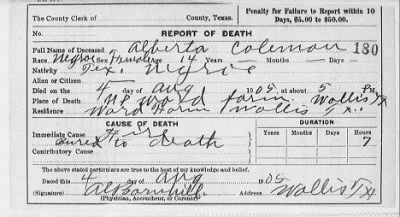 The County Clerk of County, Texas. Penalty for Failure to Report within 10 Days, $5.00 to $50.00.
REPORT OF DEATH
Full Name of Deceased Alberta Coleman 180
Race Negroe Sex Female Age 14 Years Months Days
Nativity Tex. Negroe
Alien or Citizen
Died on the 4 day of Aug 1905, at about 5 P M.
Place of Death Ward farm Wallis Tx
Residence Ward Farm Wallis Tx.
CAUSE OF DEATH
DURATION
Immediate Cause
Years Months Days Hours
to death 7
Contributory Cause
The above stated particulars are true to the best of my knowledge and belief.
Dated this 4 day of Aug 1905
(Signature) Address Wallis Tx
(Physician, Accoucheur, or Coroner)